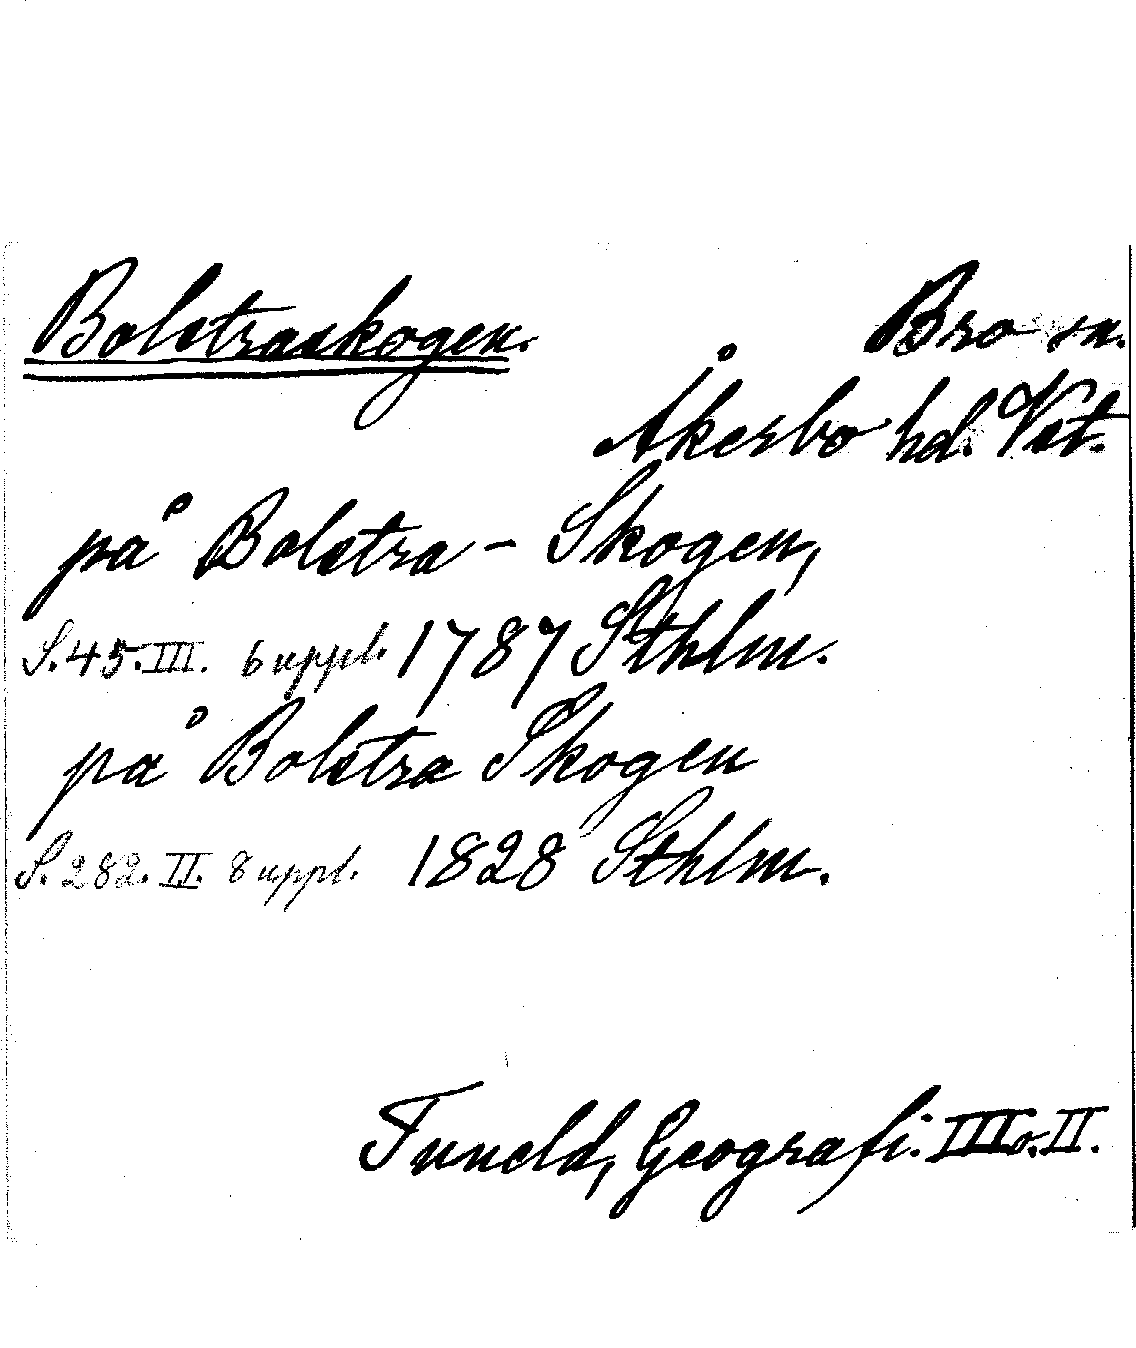 Bolstraskogen.
Bro sn.
Åkerbo hd. Vst.
på Bolstra - Skogen,
S. 45. III. 6 uppl. 1787 Sthlm.
på Bolstra Skogen
S. 282. II. 8 uppl. 1828 Sthlm.
Tuneld, Geografi. III o. II.